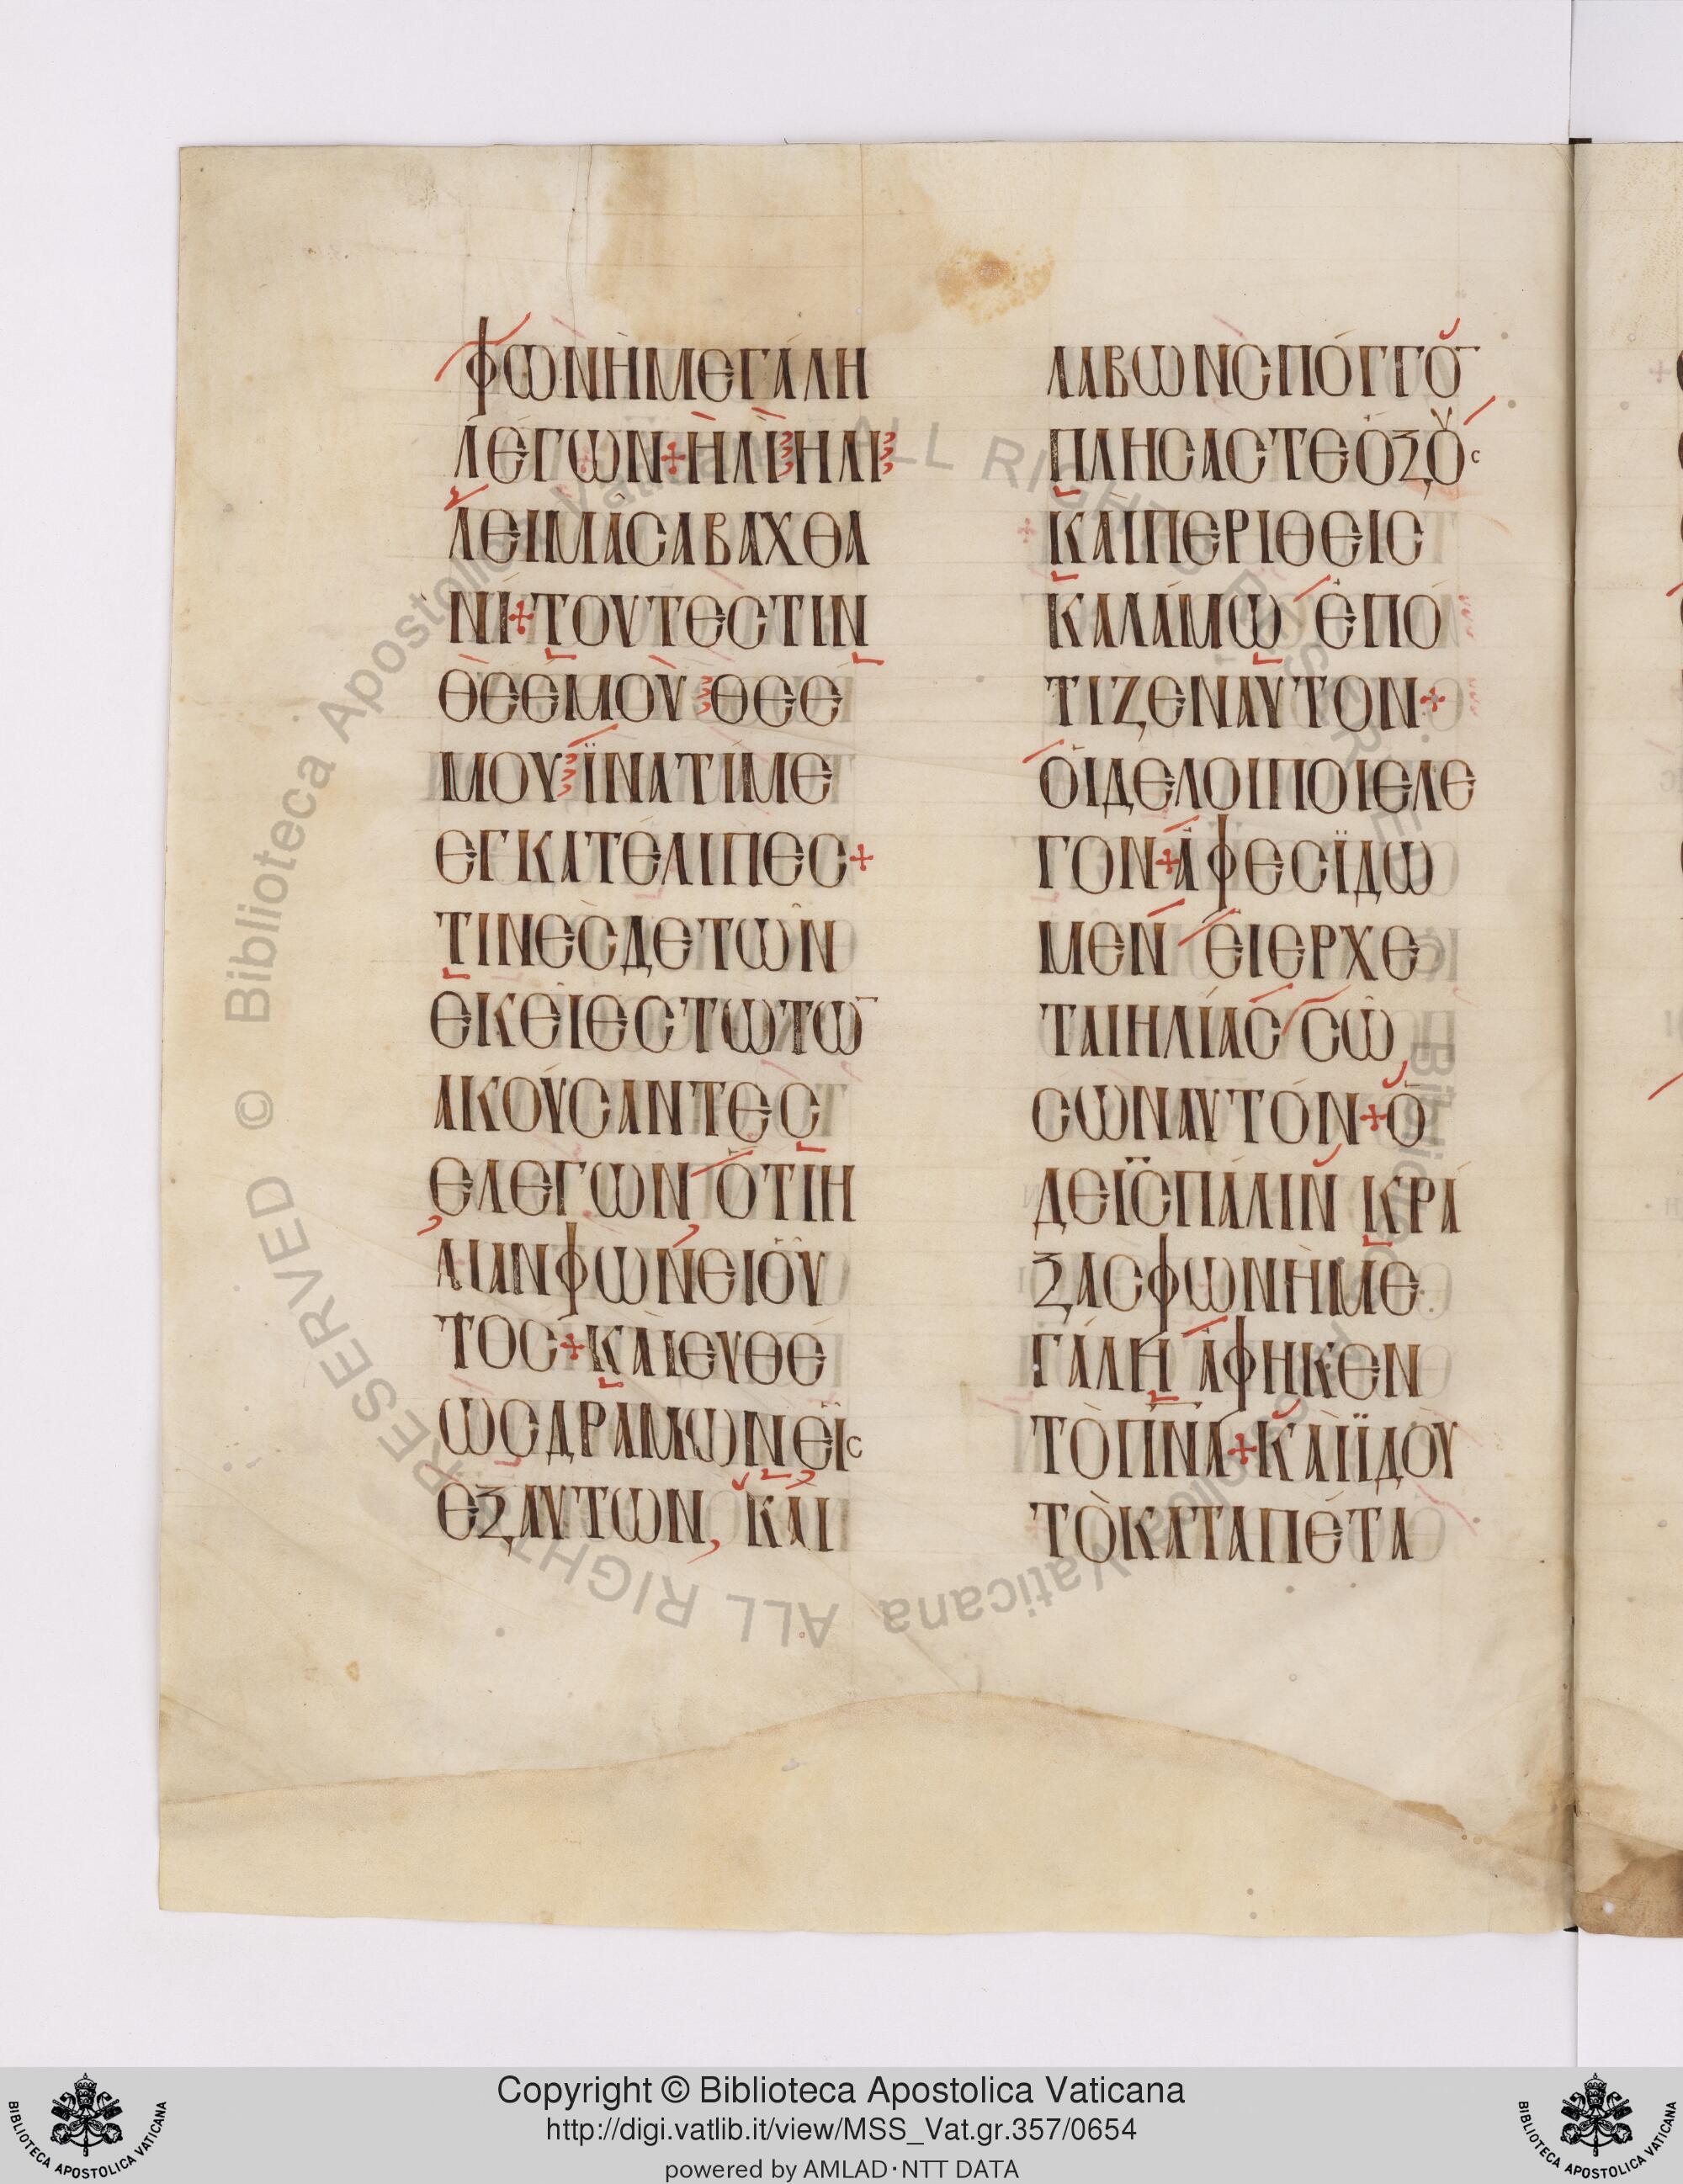 ΦΩΝῊΜΕΓΆΛΗ
ΛΈΓΩΝ+ΗΛΙΗΛΙ
ΛΕΙΜᾶϹΑΒΑΧΘΑ
ΝΊ+ΤΟΥΤΈϹΤΙΝ
ΘΕΈΜΟῪΘΕΈ
ΜΟΥΪΝΑΤΊΜΕ
ΕΓΚΑΤΈΛΙΠΕϹ+
ΤΙΝΕϹΔΕΤῶΝ
ἘΚΕῖΕϹΤΩΤΩ̅
ΑΚΟΎϹΑΝΤΕϹ
ΕΛΕΓΩΝ,ὍΤΙΗ
ΛΙΑΝΦΩΝΕΙΟὙ
ΤΟϹ+ΚΑῚΕΥΘΈ
ΩϹΔΡΑΜΩΝΕἿϹ
ΕΞΑΥΤΩΝ, ΚΑῚ
ΛΑΒΩΝϹΠΌΓΓΟ̅
ΠΛΗϹΑϹΤΕὌΞΟΥϹ
ΚΑΙΠΕΡΙΘΕΙϹ
ΚΑΛΆΜΩ ἘΠΌ
ΤΙΖΕΝΑΥΤΟΝ+
ὉΙΔΕΛΟΙΠΟΙΕΛΕ
ΓΟΝ+ἌΦΕϹΪΔΩ
ΜΕΝ ἘΙΕΡΧΕ
ΤΑΙΗΛΊΑϹ ϹΏ
ϹΩΝΑΥΤΌΝ+Ὁ
ΔΕΪϹΠΆΛΙΝ ΚΡΆ
ΞΑϹΦΩΝῊΜΕ
ΓΆΛΗ ἌΦΗΚΕΝ
ΤῸΠ̅Ν̅Α̅+ΚΑῚΪΔΟῪ
ΤῸΚΑΤΑΠΈΤΑ
© Biblioteca Apostolica Vaticana ALL RIGHTS RESERVED
© Biblioteca Apostolica Vaticana ALL RIGHTS RESERVED
Copyright © Biblioteca Apostolica Vaticana
http://digi.vatlib.it/view/MSS_Vat.gr.357/0654
powered by AMLAD·NTT DATA
BIBLIOTECA APOSTOLICA VATICANA
BIBLIOTECA APOSTOLICA VATICANA